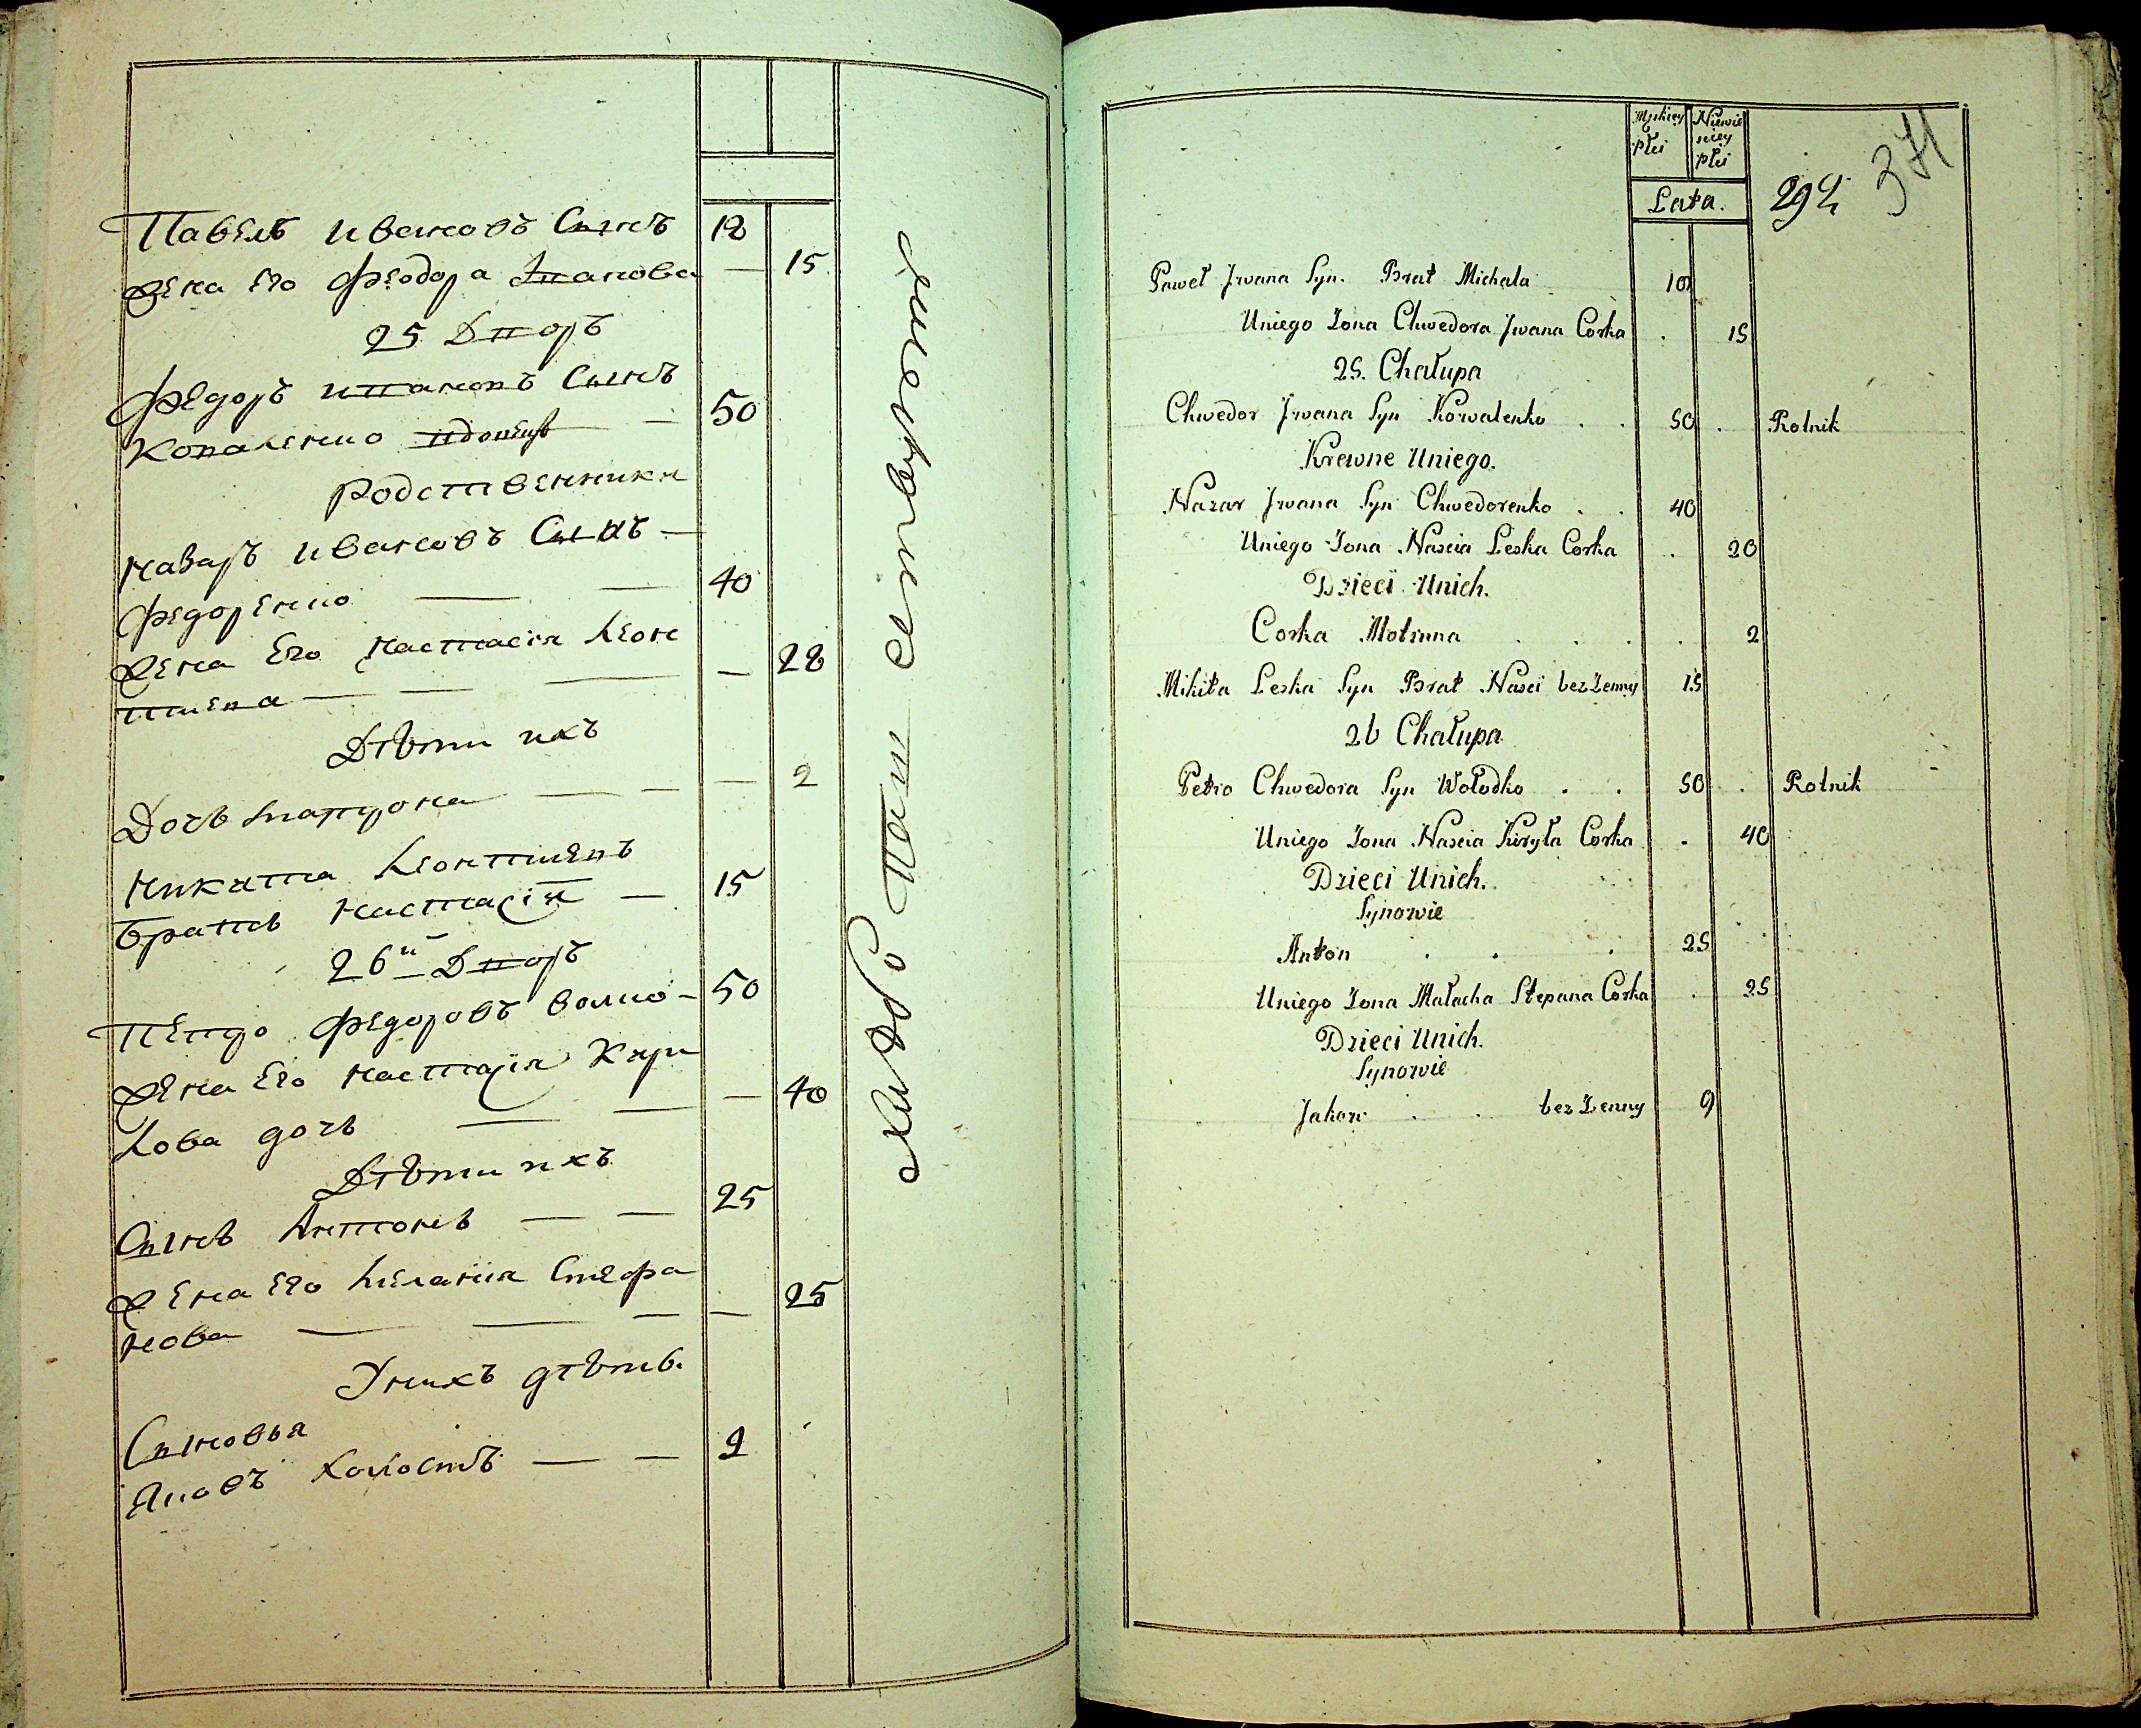 Павелъ Ивановъ Сынъ 18
Жена Его Феодора Иванова — 15
25 Дворъ
Федоръ Ивановъ Сынъ
Коваленко вдовецъ — 50
Родственники
Назаръ Ивановъ Сынъ —
Федоренко — — 40
Жена Его Настасія Леон
тіева — — — — 28
Дѣти ихъ
Дочь Матрона — — — 2
Никита Леонтіевъ
братъ Настасіи — 15
26й Дворъ
Петро Федоровъ — 50
Жена Его Настасія Кири
лова дочь — — — 40
Дѣти ихъ
Сынъ Антонъ — — 25
Жена Его Меланія Стефа
нова — — — — 25
У нихъ дѣти.
Сыновья
Яковъ Холостъ — — 9
Męskiey Płci
Niewieściey Płci
Lata.
294
371
Paweł Jwana Syn. Brat Michala 18
Uniego Żona Chwedora Jwana Corka . 15
25. Chałupa
Chwedor Jwana Syn Kowalenko . . 50 . Rolnik
Krewne Uniego.
Nazar Jwana Syn Chwedorenko . . 40
Uniego Żona Naścia Leska Corka . 20
Dzieci Unich.
Corka Motrunna . . . . 2
Mikita Leska Syn Brat Naści bez Żenny 15
26 Chałupa
Petro Chwedora Syn Wołodko . . 50 . Rolnik
Uniego Żona Naścia Kiryła Corka . 40
Dzieci Unich.
Synowie
Anton . . . 25
Uniego Żona Małacha Stepana Corka . 25
Dzieci Unich.
Synowie
Jakow . . bez Żenny 9